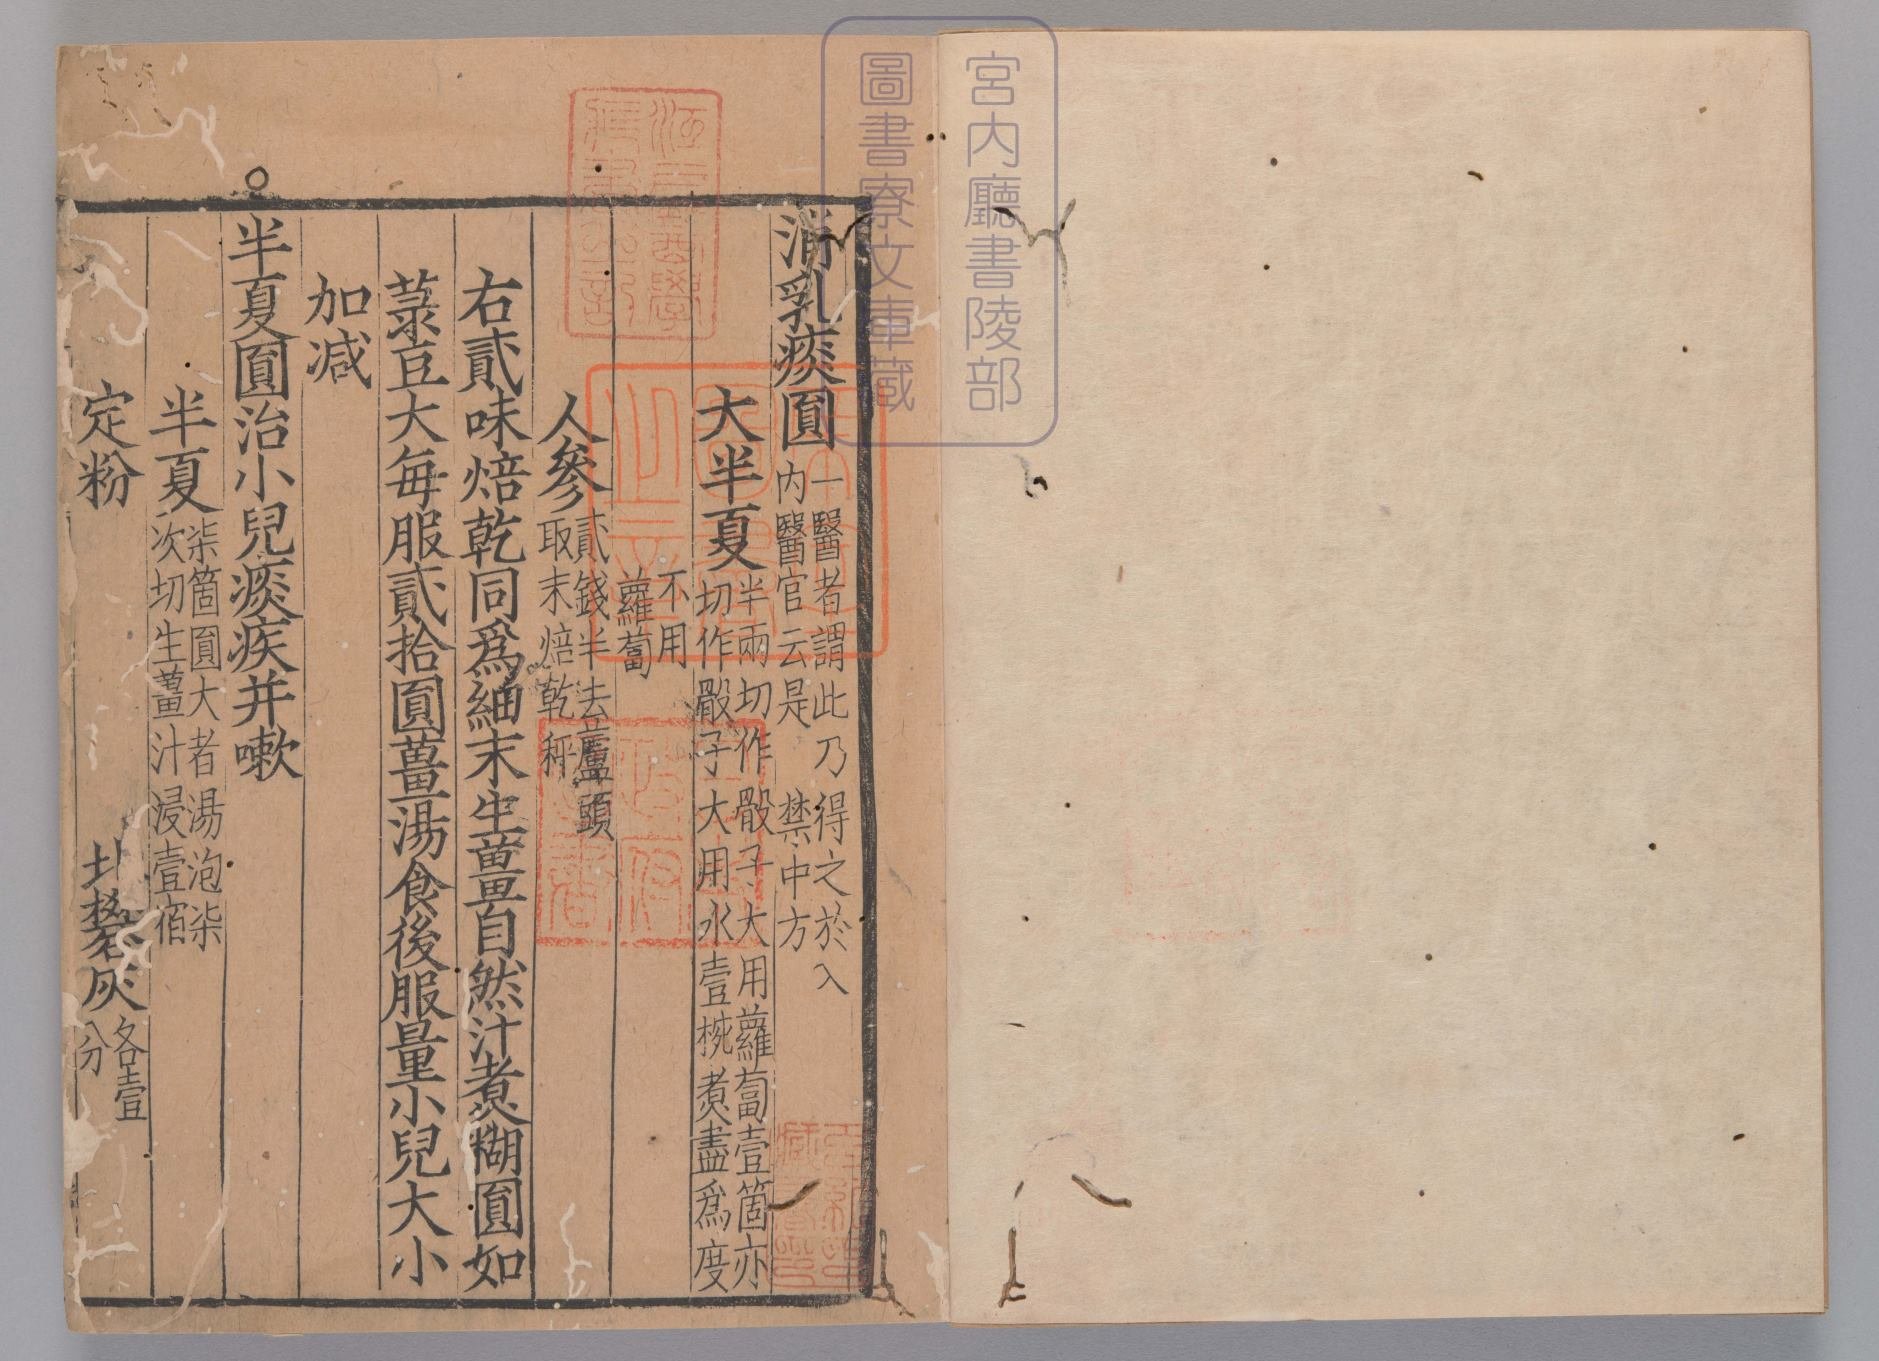 宮内廳書陵部
圖書寮文庫蔵
消乳痰圓
一醫者謂此乃得之於入
内醫官云是禁中方
大半夏
半兩切作骰子大用蘿蔔壹箇亦
切作骰子大用水壹椀煮盡爲度
不用
蘿蔔
人參
貳錢半去蘆頭
取末焙乾秤
右貳味焙乾同爲細末生薑自然汁煮糊圓如
菉豆大每服貳拾圓薑湯食後服量小兒大小
加减
半夏圓治小兒痰疾并嗽
半夏
柒箇圓大者湯泡柒
次切生薑汁浸壹宿
定粉
礬灰
各壹
分